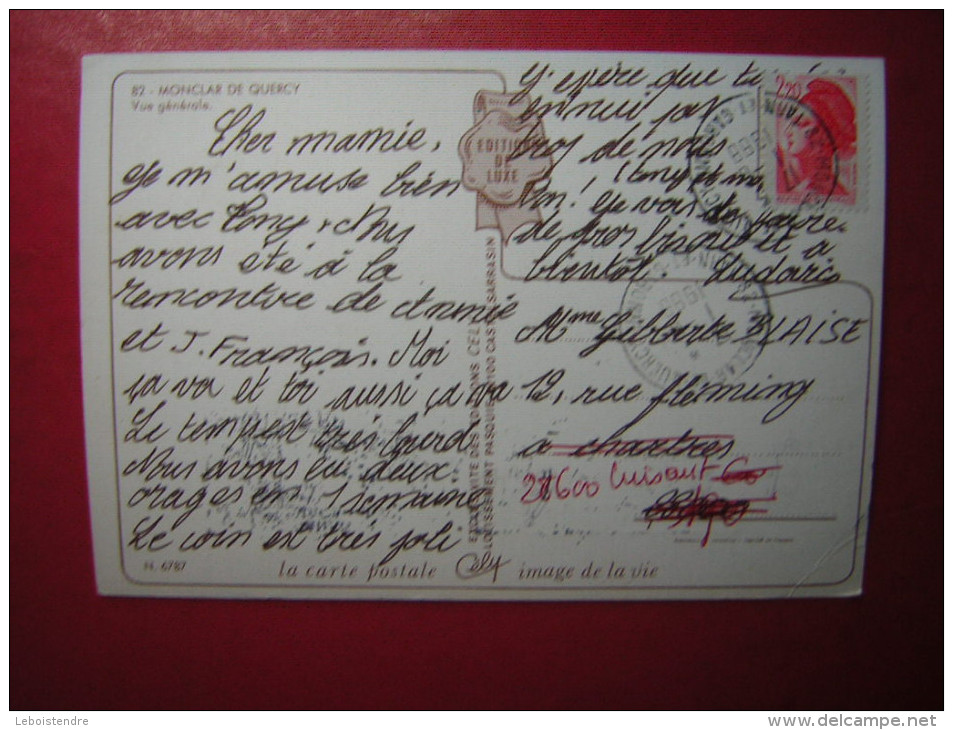 82 - MONCLAR DE QUERCY
Vue générale.
Cher mamie,
Je m'amuse bien
avec Tony. Nous
avons été à la
rencontre de Annie
et J. François. Moi
ça va et toi aussi ça va
Le temp est très lourd
Nous avons eu deux
orages en 1 semaine
Le coin est très joli
J'epère que tu
ennui pas
tros de nous
(Tony et moi
Bon! Je vais te
de gros bisous et a
bientôt. Ludovic
EDITIONS
DE
LUXE
2,20
Mme Gilberte BLAISE
12, rue fléming
à chartres
28600 Luisant
N. 6787
la carte postale Cely image de la vie
Leboistendre
www.delcampe.net